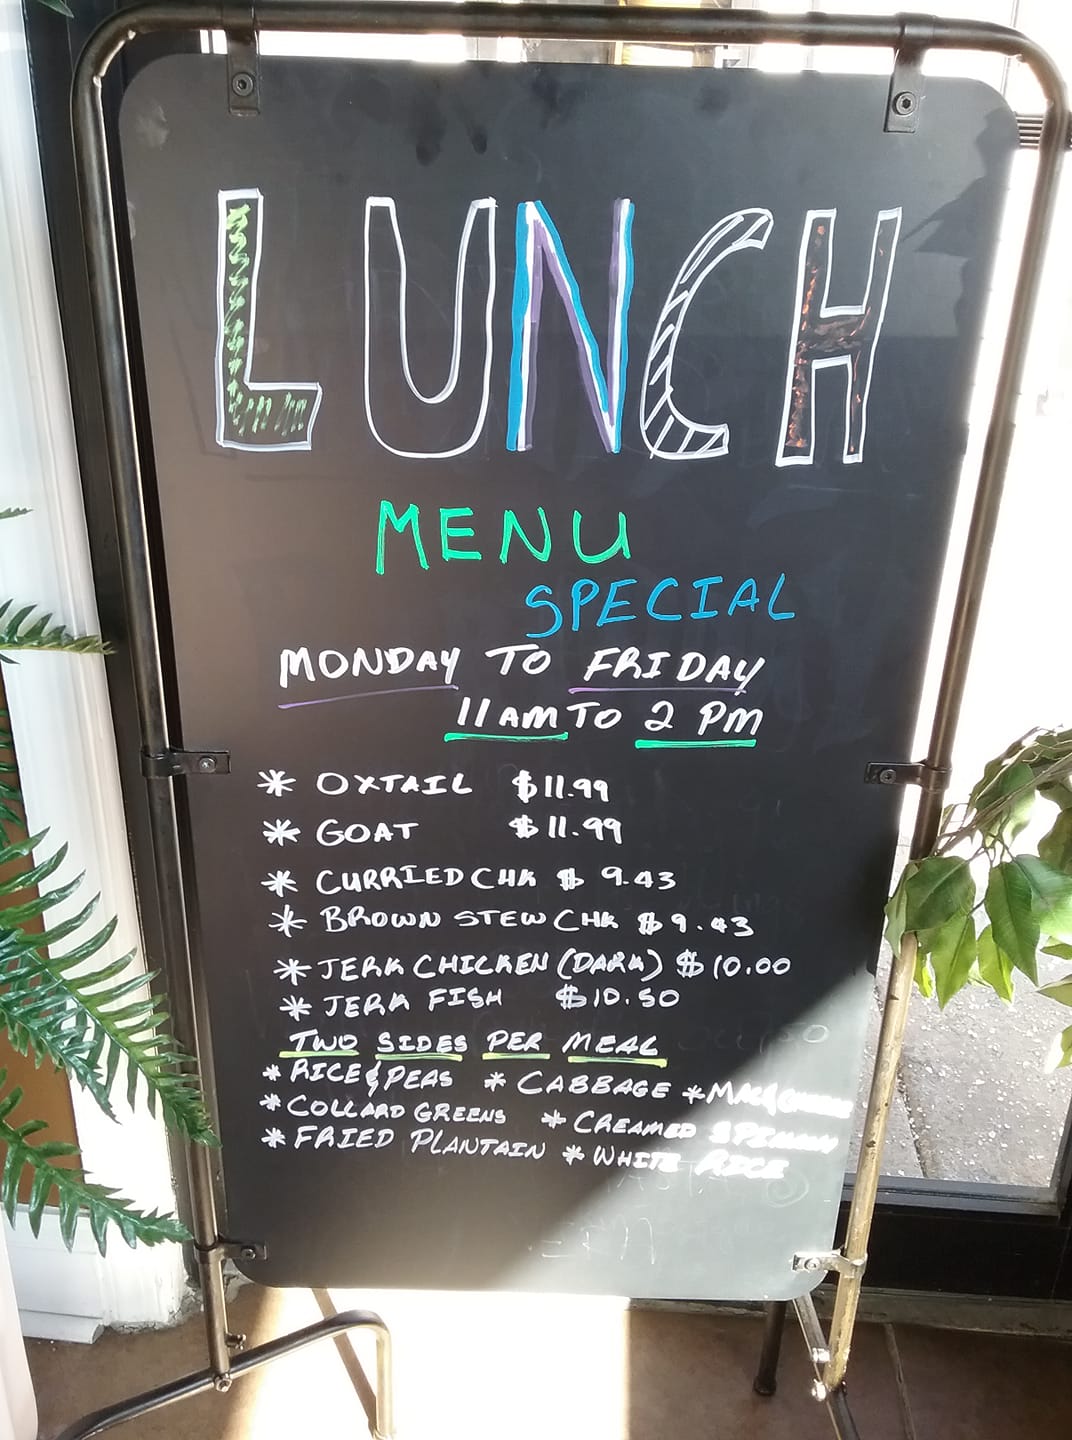 LUNCH
MENU
SPECIAL
MONDAY TO FRIDAY
11 AM TO 2 PM
* OXTAIL $11.99
* GOAT $11.99
* CURRIED CHK $ 9.43
* BROWN STEW CHK $9.43
* JERK CHICKEN (DARK) $10.00
* JERK FISH $10.50
TWO SIDES PER MEAL
* RICE & PEAS * CABBAGE * MAC & CHEESE
* COLLARD GREENS * CREAMED
* FRIED PLANTAIN * WHITE RICE